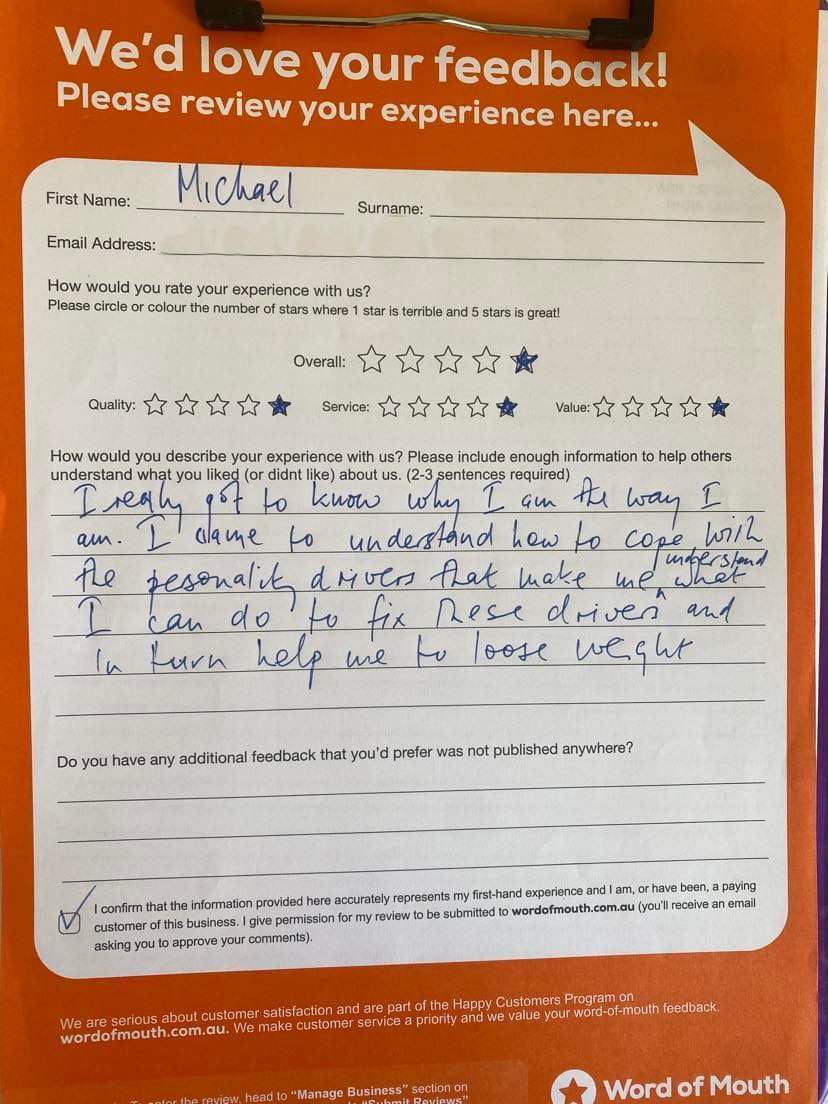 We'd love your feedback!
Please review your experience here...
First Name: Michael
Surname:
Email Address:
How would you rate your experience with us?
Please circle or colour the number of stars where 1 star is terrible and 5 stars is great!
Overall:
Quality:
Service:
Value:
How would you describe your experience with us? Please include enough information to help others
understand what you liked (or didnt like) about us. (2-3 sentences required)
I really got to know why I am the way I
am. I came to understand how to cope with
the pesonality drivers that make me understand what
I can do to fix these drivers and
in turn help me to loose weight
Do you have any additional feedback that you'd prefer was not published anywhere?
I confirm that the information provided here accurately represents my first-hand experience and I am, or have been, a paying
customer of this business. I give permission for my review to be submitted to wordofmouth.com.au (you'll receive an email
asking you to approve your comments).
We are serious about customer satisfaction and are part of the Happy Customers Program on
wordofmouth.com.au. We make customer service a priority and we value your word-of-mouth feedback.
enter the review, head to "Manage Business" section on
"Submit Reviews"
Word of Mouth